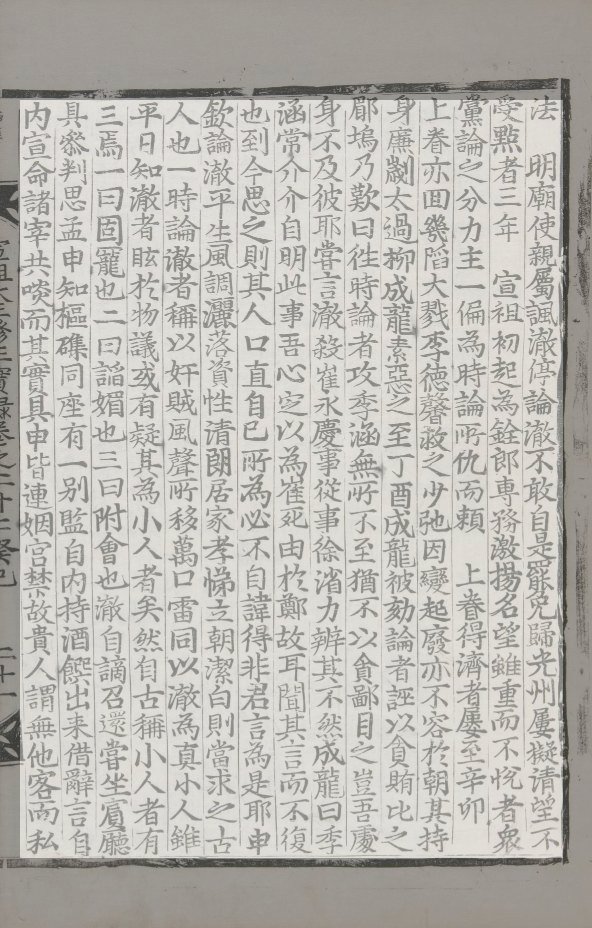 法　明廟使親屬諷澈停論澈不敢自是罷免歸光州屢擬清望不
受點者三年　宣祖初起為銓郎專務激揚名望雖重而不悅者衆
黨論之分力主一偏為時論所仇而賴　上眷得濟者屢至辛卯
上眷亦回幾陷大戮李德馨救之少弛因變起廢亦不容於朝其持
身廉劌太過柳成龍素惡之至丁酉成龍被劾論者誣以貪賄比之
郿塢乃歎曰徃時論者攻李涵無所不至猶不以貪鄙目之豈吾處
身不及彼耶嘗言澈殺崔永慶事從事徐渻力辨其不然成龍曰季
涵常介介自明此事吾心定以為崔死由於鄭故耳聞其言而不復
也到今思之則其人口直自已所為必不自諱得非君言為是耶申
欽論澈平生風調灑落資性清朗居家孝悌立朝潔白則當求之古
人也一時論澈者稱以奸賊風聲所移萬口雷同以澈為真小人雖
平日知澈者眩於物議或有疑其為小人者矣然自古稱小人者有
三焉一曰固寵也二曰謟媚也三曰附會也澈自謫召還嘗坐賓廳
具叅判思孟申知樞磼同座有一別監自內持酒饌出来借辭言自
內宣命諸宰共啖而其實具申皆連姻宮禁故貴人謂無他客而私
宣祖大王修正實錄卷之二十七癸巳　二十一